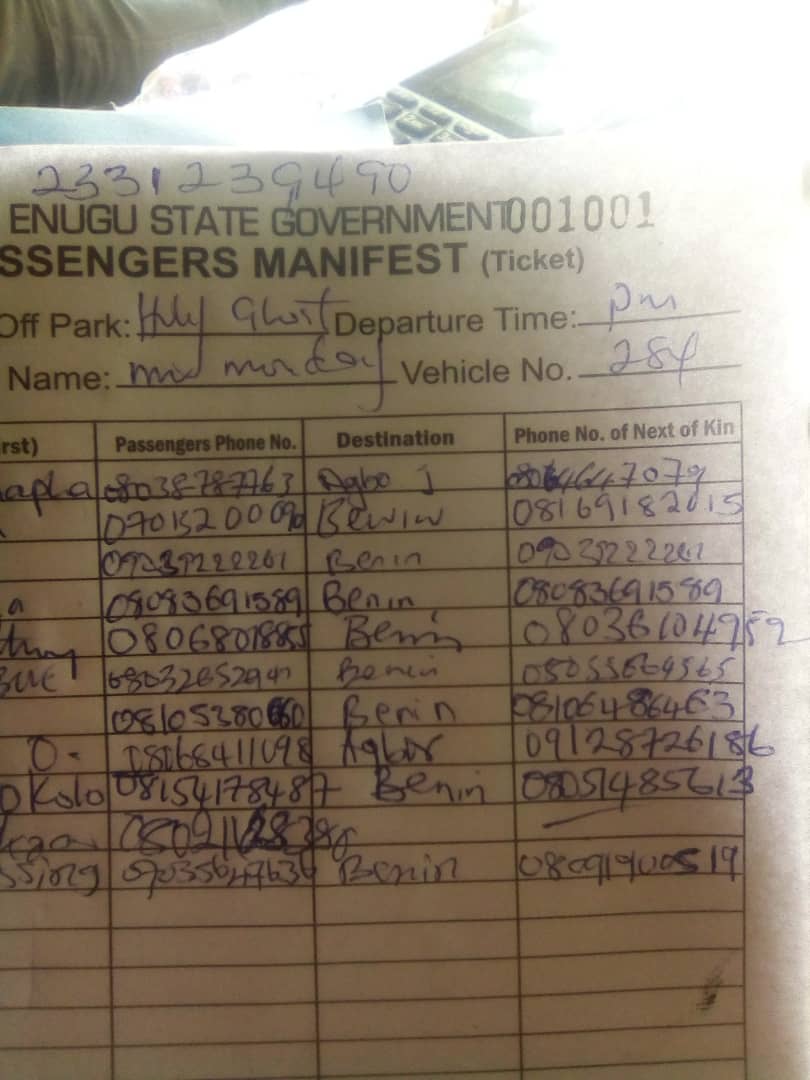 2331239490
ENUGU STATE GOVERNMENT 001001
SSENGERS MANIFEST (Ticket)
Off Park: Holy Ghost Departure Time: pm
Name: monday Vehicle No. 284
rst) Passengers Phone No. Destination Phone No. of Next of Kin
apla 08038787763 Agbo j
Benin 08169182015
09039222261 Benin 09039222261
a 08083691589 Benin 08083691589
thny 08068018855 Benin 08036104959
Benin 08055664565
Benin 08106486463
O. 08168411098 Agbor 09128726186
okolo 08154178487 Benin 08051485613
ssing 09035647636 Benin 08091900519